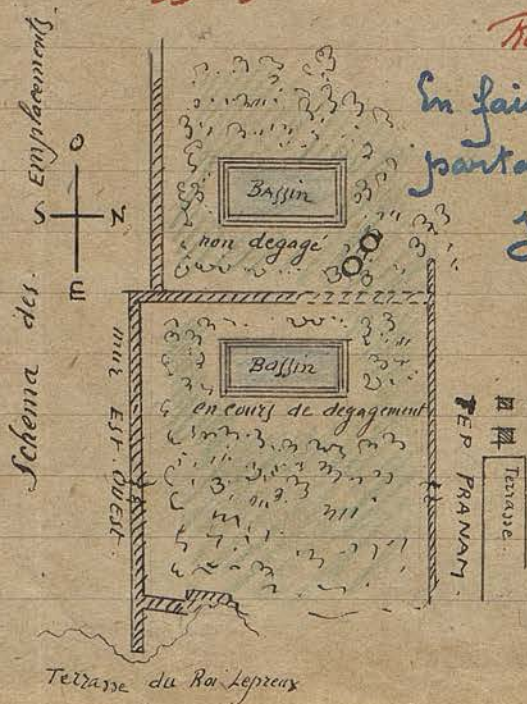 En fai
parta
Schema des Emplacements
O
S N
E
Bassin
non degagé
Bassin
en cours de degagement
mur EST-OUEST
TEP PRANAM
Terrasse
Terrasse du Roi Lepreux